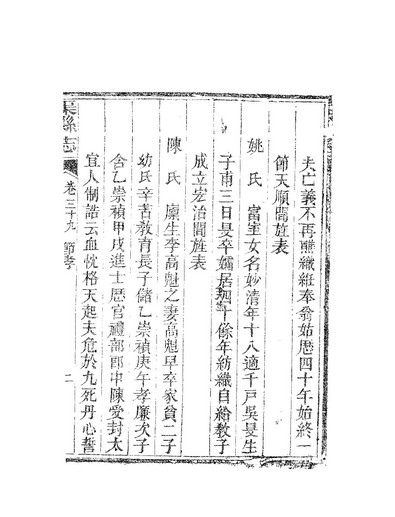 夫亡義不再醮纖維奉翁姑歷四十年始終一
節天順間旌表
姚氏 富室女名妙清年十八適千戶吳旻生
子甫三日旻卒孀居四十餘年紡織自給教子
成立宏治間旌表
陳氏 廩生李高魁之妻高魁早卒家貧二子
幼氏辛苦教育長子儲乙崇禎庚午孝廉次子
含乙崇禎甲戌進士歷官禮部郎中陳愛封太
宜人制誥云血忱格天起夫危於九死丹心誓
縣志
卷三十九 節孝
二